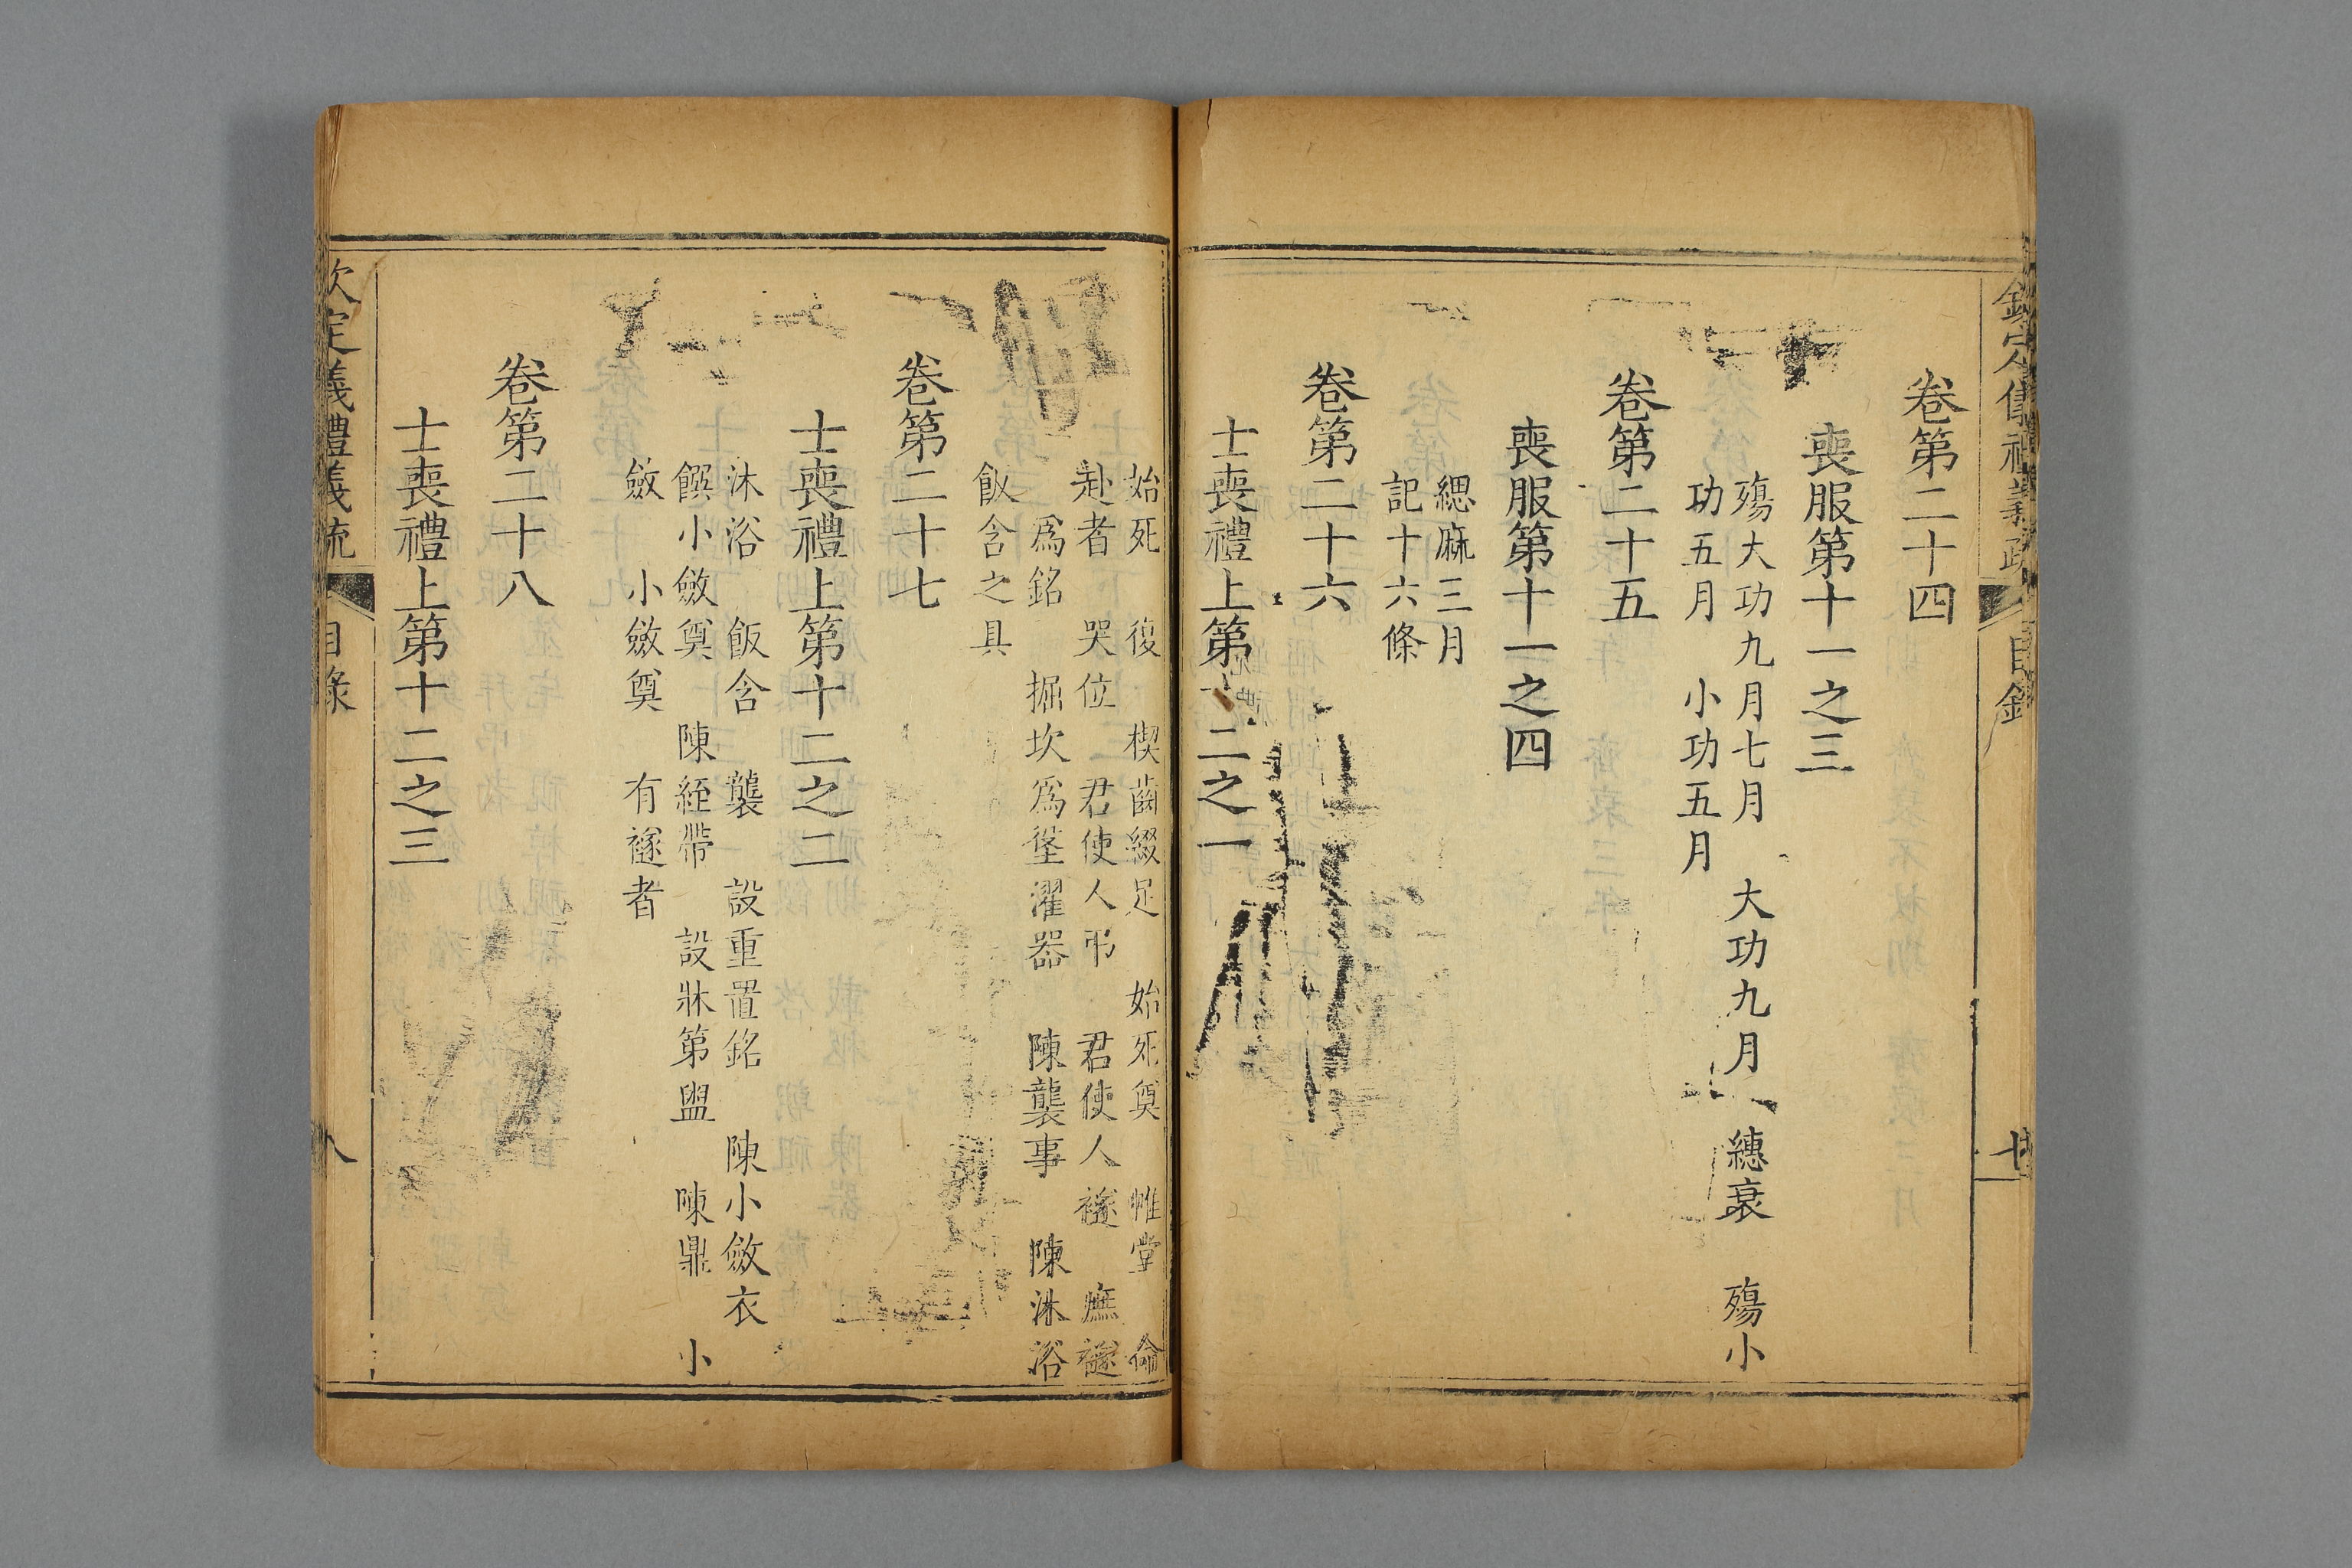 欽定儀禮義疏 目錄
卷第二十四
喪服第十一之三
殤大功九月七月 大功九月 繐衰 殤小
功五月 小功五月
卷第二十五
喪服第十一之四
緦麻三月
記十六條
卷第二十六
士喪禮上第十二之一
始死 復 楔齒綴足 始死奠 帷堂 命
赴者 哭位 君使人弔 君使人襚 庶襚
爲銘 掘坎爲垼濯器 陳襲事 陳沐浴
飯含之具
卷第二十七
士喪禮上第十二之二
沐浴 飯含 襲 設重置銘 陳小斂衣
饌小斂奠 陳絰帶 設牀第盥 陳鼎 小
斂 小斂奠 有襚者
卷第二十八
士喪禮上第十二之三
欽定義禮義疏 目錄 八